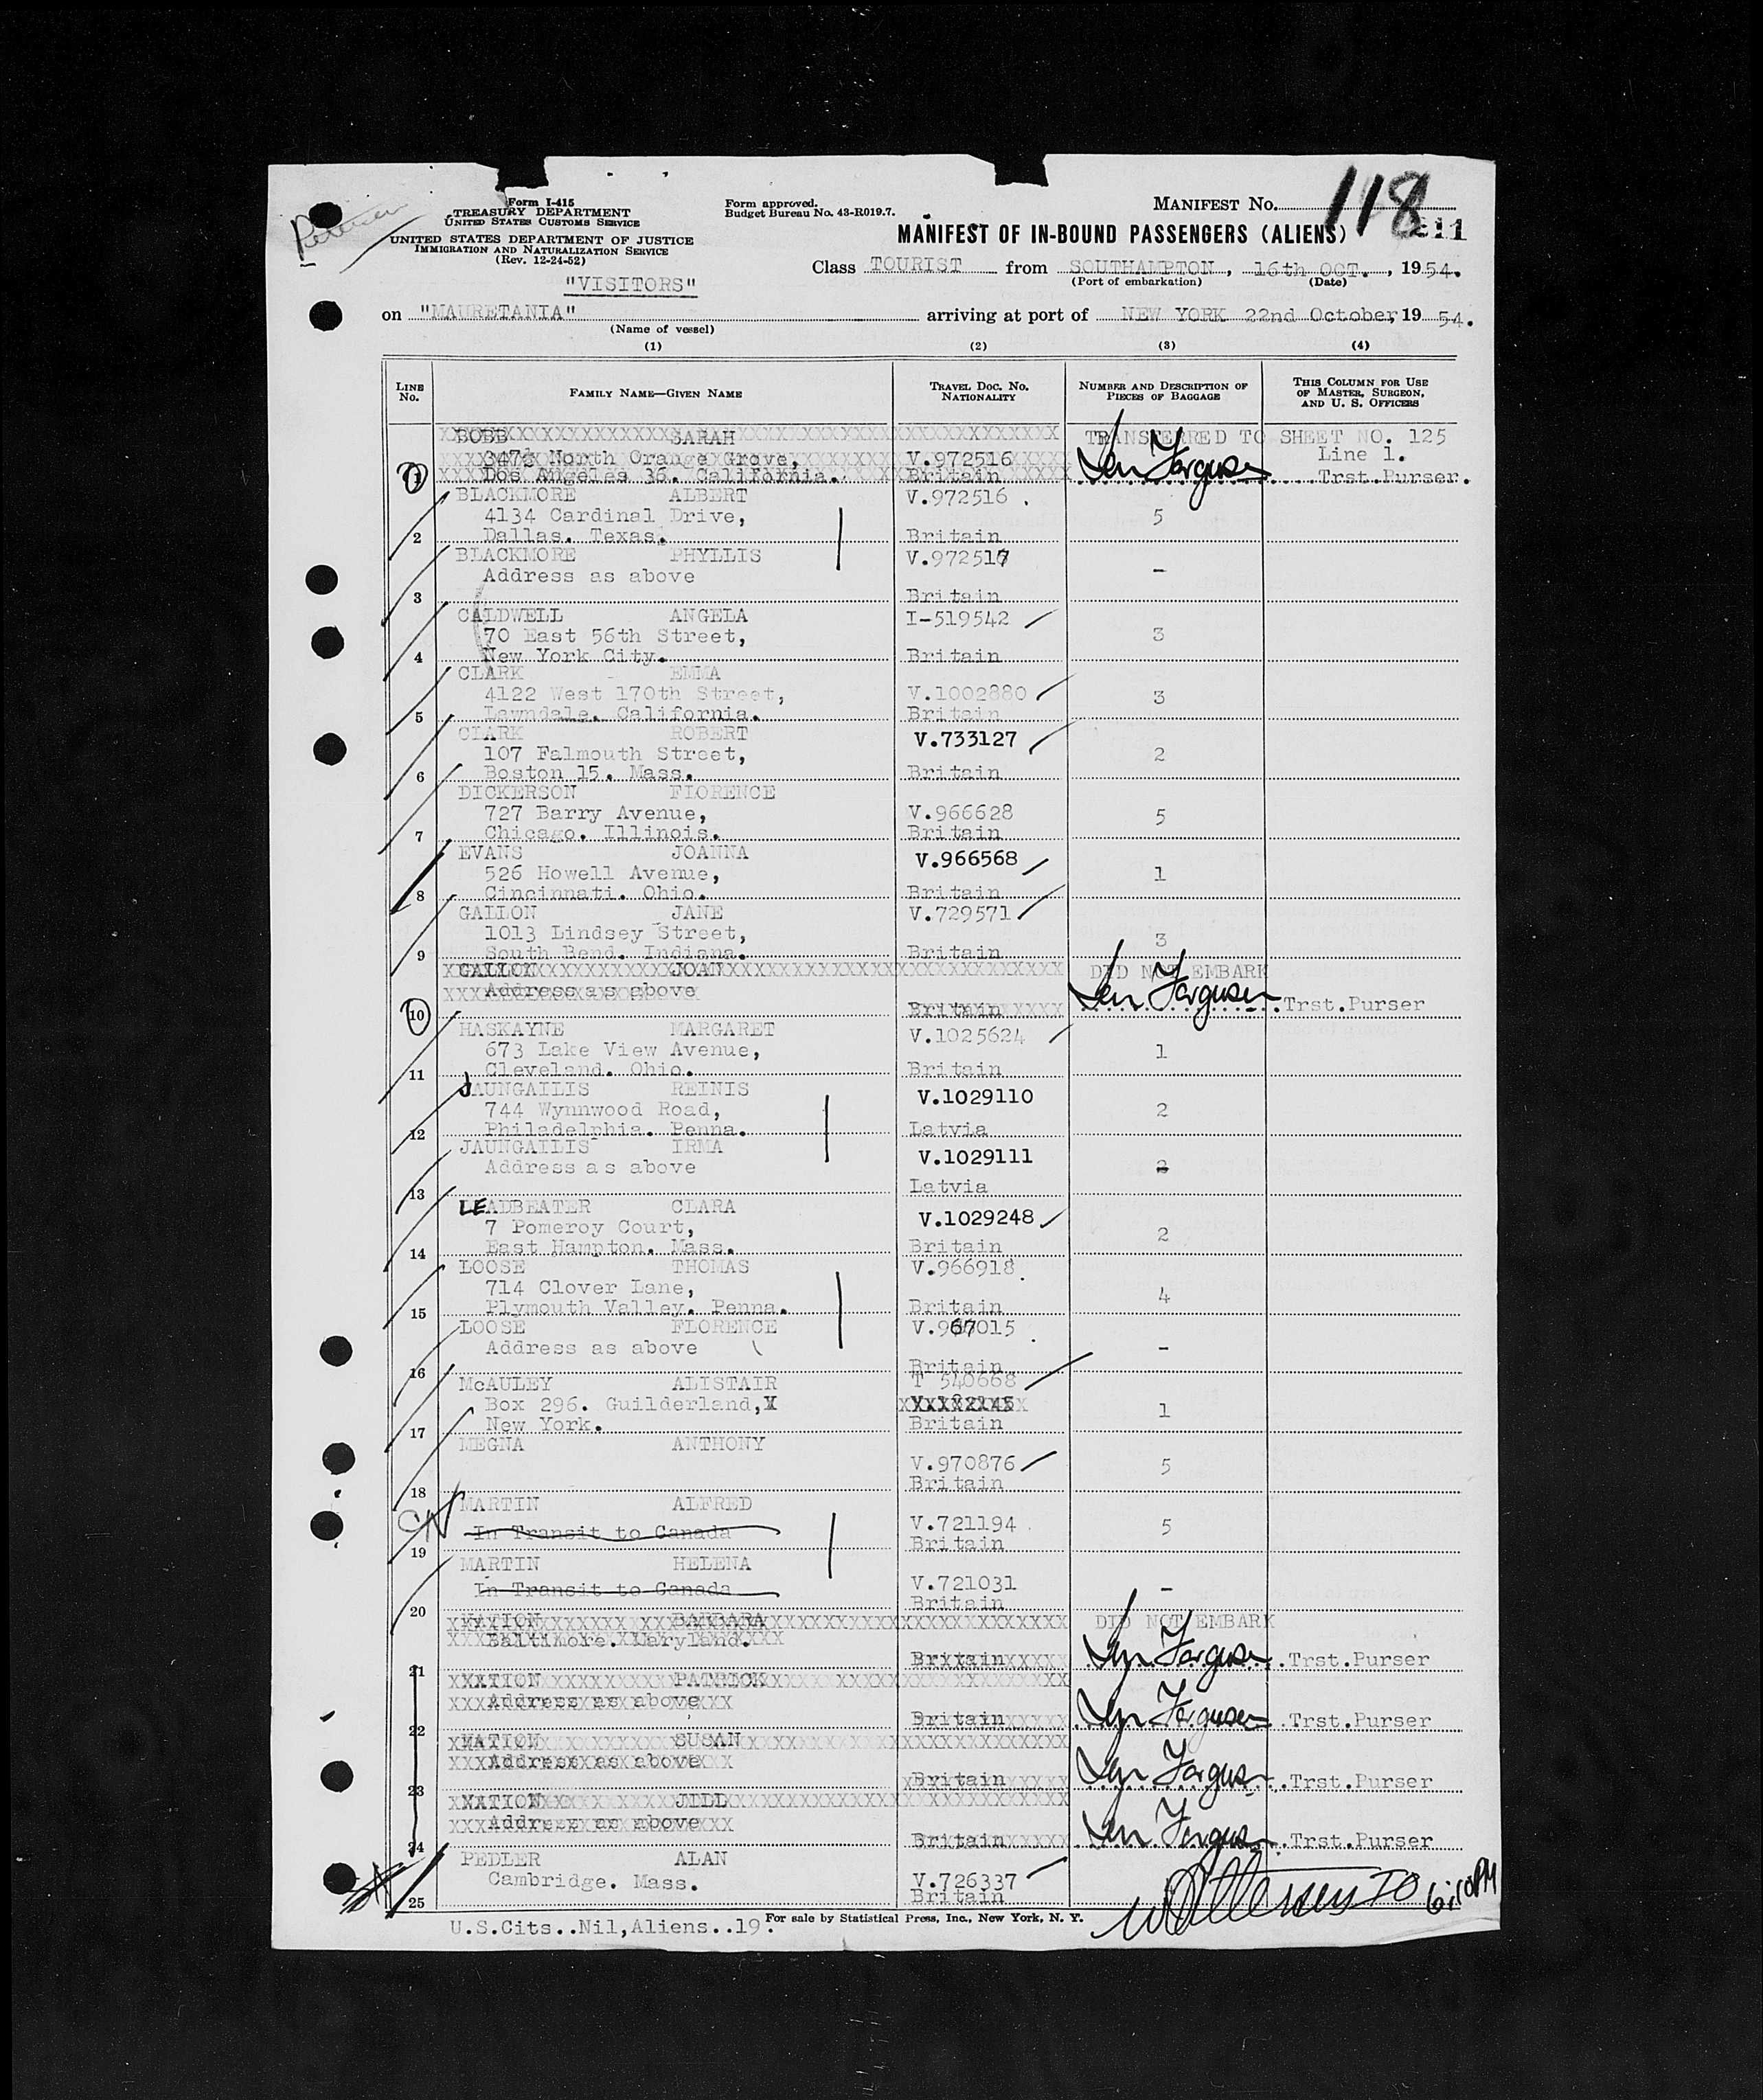 Form I-415
TREASURY DEPARTMENT
UNITED STATES CUSTOMS SERVICE
UNITED STATES DEPARTMENT OF JUSTICE
IMMIGRATION AND NATURALIZATION SERVICE
(Rev. 12-24-52)
Form approved.
Budget Bureau No. 43-R019.7.
MANIFEST No. 118
MANIFEST OF IN-BOUND PASSENGERS (ALIENS)
Class TOURIST from SOUTHAMPTON, 16th OCT., 1954.
(Port of embarkation) (Date)
"VISITORS"
on "MAURETANIA" arriving at port of NEW YORK 22nd October, 1954.
(Name of vessel)
(1) (2) (3) (4)
LINE No. FAMILY NAME—GIVEN NAME TRAVEL DOC. No. NATIONALITY NUMBER AND DESCRIPTION OF PIECES OF BAGGAGE THIS COLUMN FOR USE OF MASTER, SURGEON, AND U. S. OFFICERS
BOBB SARAH TRANSFERRED TO SHEET NO. 125
North Orange Grove, V.972516 Line 1.
1 Los Angeles 36. California. Britain Len Ferguson Trst.Purser.
BLACKMORE ALBERT V.972516
4134 Cardinal Drive, 5
2 Dallas. Texas. Britain
BLACKMORE PHYLLIS V.972517
Address as above -
3 Britain
CALDWELL ANGELA I-519542
70 East 56th Street, 3
4 New York City. Britain
CLARK EMMA
4122 West 170th Street, V.1002880 3
5 Lawndale. California. Britain
CLARK ROBERT V.733127
107 Falmouth Street, 2
6 Boston 15. Mass. Britain
DICKERSON FLORENCE
727 Barry Avenue, V.966628 5
7 Chicago. Illinois. Britain
EVANS JOANNA V.966568
526 Howell Avenue, 1
8 Cincinnati. Ohio. Britain
GALLON JANE V.729571
1013 Lindsey Street, 3
9 South Bend. Indiana. Britain
GALLON JOAN DID NOT EMBARK
Address as above
10 Britain Len Ferguson Trst.Purser
HASKAYNE MARGARET V.1025624
673 Lake View Avenue, 1
11 Cleveland. Ohio. Britain
JAUNGAILIS REINIS V.1029110
744 Wynnwood Road, 2
12 Philadelphia. Penna. Latvia
JAUNGAILIS IRMA V.1029111
Address as above 2
13 Latvia
LEADBEATER CLARA V.1029248
7 Pomeroy Court, 2
14 East Hampton. Mass. Britain
LOOSE THOMAS V.966918
714 Clover Lane, 4
15 Plymouth Valley. Penna. Britain
LOOSE FLORENCE V.967015
Address as above -
16 Britain
McAULEY ALISTAIR T 540668
Box 296. Guilderland, 1
17 New York. Britain
MEGNA ANTHONY
V.970876 5
18 Britain
MARTIN ALFRED
In Transit to Canada V.721194 5
19 Britain
MARTIN HELENA
In Transit to Canada V.721031 -
20 Britain
NATION BARBARA DID NOT EMBARK
Baltimore. Maryland.
21 Britain Len Ferguson Trst.Purser
NATION PATRICK
Address as above
22 Britain Len Ferguson Trst.Purser
NATION SUSAN
Address as above
23 Britain Len Ferguson Trst.Purser
NATION JILL
Address as above
24 Britain Len Ferguson Trst.Purser
PEDLER ALAN
Cambridge. Mass. V.726337
25 Britain 6:10PM
U.S.Cits..Nil,Aliens..19.
For sale by Statistical Press, Inc., New York, N. Y.